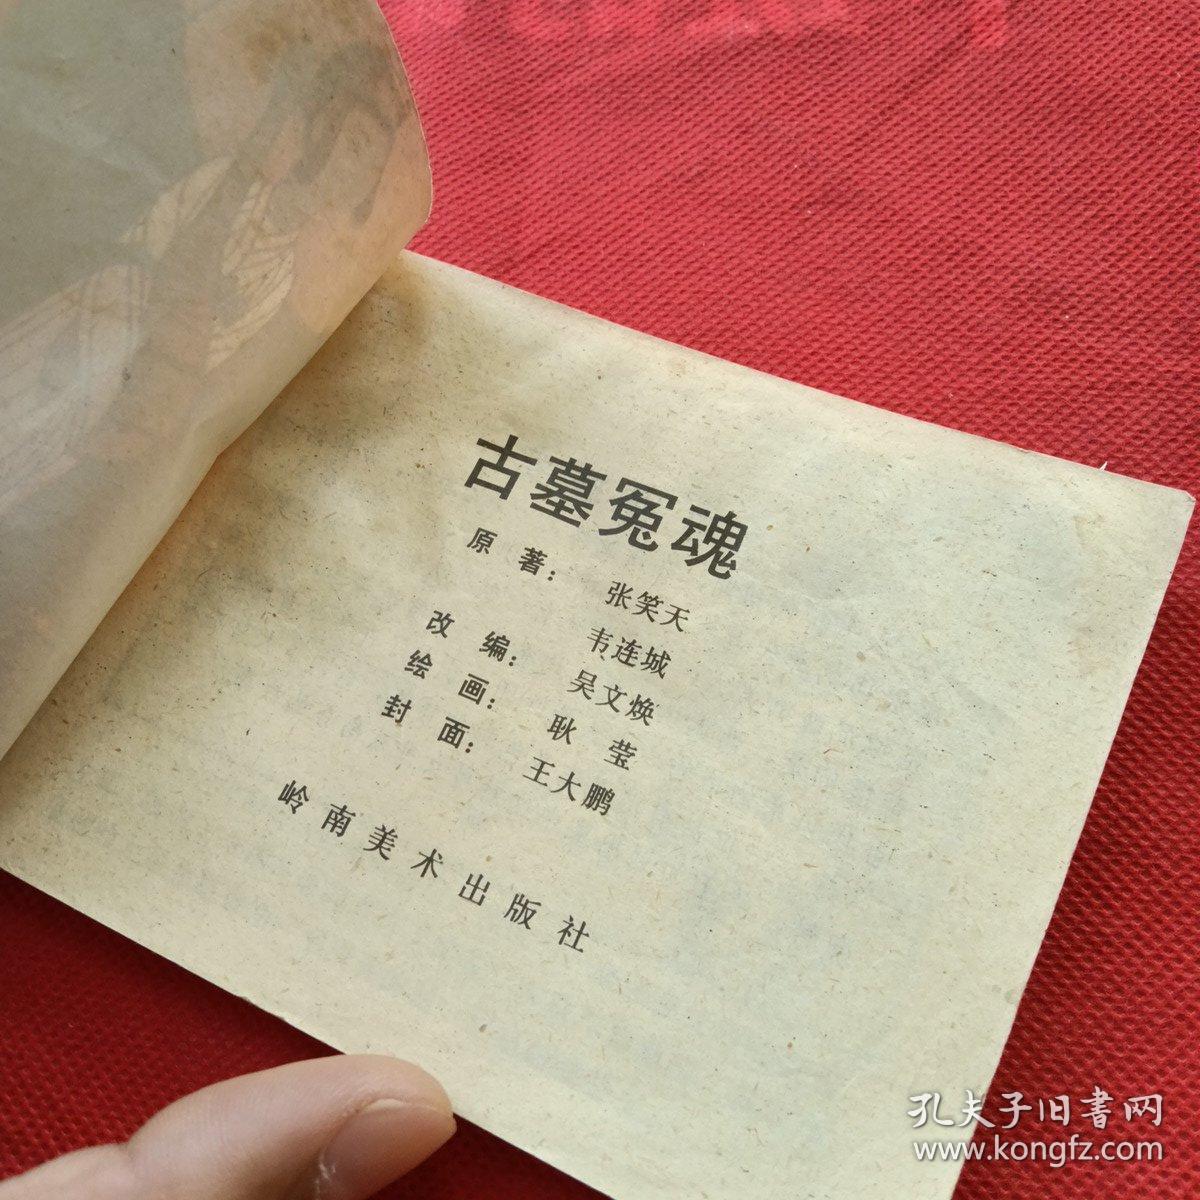 古墓冤魂
原 著： 张笑天
韦连城
改 编： 吴文焕
绘 画： 耿 莹
封 面： 王大鹏
岭南美术出版社
孔夫子旧書网
www.kongfz.com